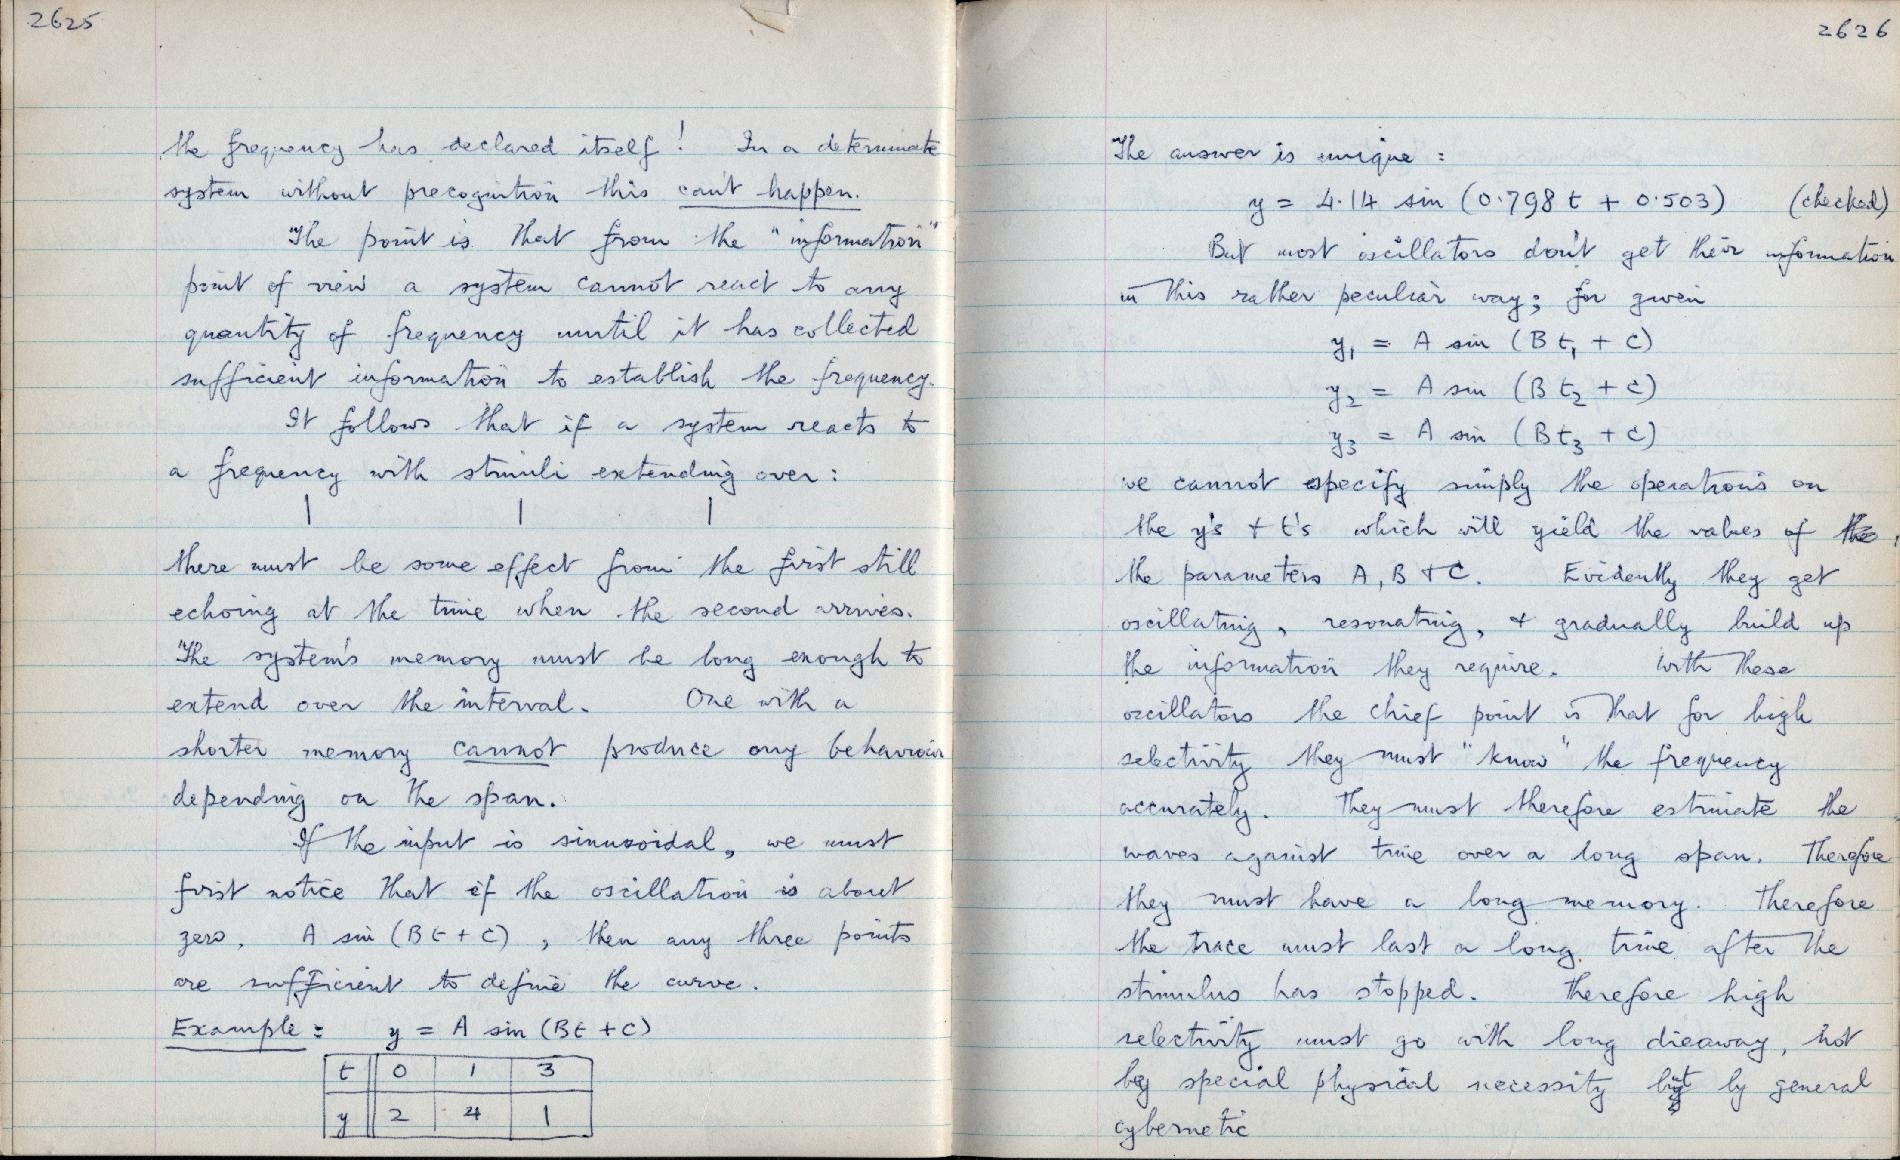 2625
the frequency has declared itself! In a determinate
system without precognition this can't happen.
The point is that from the "information"
point of view a system cannot react to any
quantity of frequency until it has collected
sufficient information to establish the frequency.
It follows that if a system reacts to
a frequency with stimuli extending over:
| | |
there must be some effect from the first still
echoing at the time when the second arrives.
The system's memory must be long enough to
extend over the interval. One with a
shorter memory cannot produce any behaviour
depending on the span.
If the input is sinusoidal, we must
first notice that if the oscillation is about
zero, A sin (Bt + C), then any three points
are sufficient to define the curve.
Example: y = A sin (Bt + C)
t 0 1 3
y 2 4 1
2626
The answer is unique:
y = 4.14 sin (0.798 t + 0.503) (checked)
But most oscillators don't get their information
in this rather peculiar way; for given
y₁ = A sin (B t₁ + C)
y₂ = A sin (B t₂ + C)
y₃ = A sin (B t₃ + C)
we cannot specify simply the operations on
the y's + t's which will yield the values of the
the parameters A, B + C. Evidently they get
oscillating, resonating, + gradually build up
the information they require. With these
oscillators the chief point is that for high
selectivity they must "know" the frequency
accurately. They must therefore estimate the
waves against time over a long span. Therefore
they must have a long memory. Therefore
the trace must last a long time after the
stimulus has stopped. Therefore high
selectivity must go with long dieaway, not
by special physical necessity but by general
cybernetic